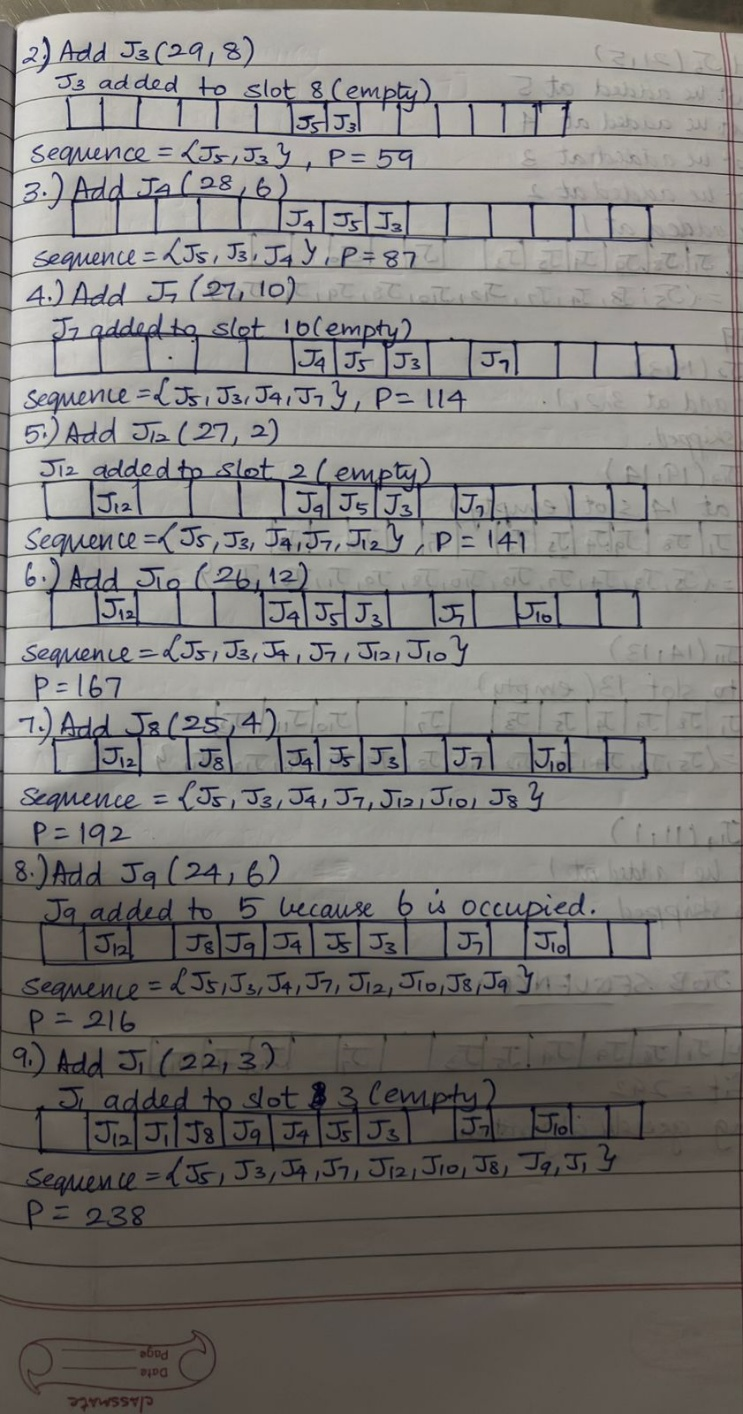 2.) Add J3 (29, 8)
J3 added to slot 8 (empty)
J5 J3
Sequence = {J5, J3}, P = 59
3.) Add J4 (28, 6)
J4 J5 J3
Sequence = {J5, J3, J4}, P = 87
4.) Add J7 (27, 10)
J7 added to slot 10 (empty)
J4 J5 J3 J7
Sequence = {J5, J3, J4, J7}, P = 114
5.) Add J12 (27, 2)
J12 added to slot 2 (empty)
J12 J4 J5 J3 J7
Sequence = {J5, J3, J4, J7, J12}, P = 141
6.) Add J10 (26, 12)
J12 J4 J5 J3 J7 J10
Sequence = {J5, J3, J4, J7, J12, J10}
P = 167
7.) Add J8 (25, 4)
J12 J8 J4 J5 J3 J7 J10
Sequence = {J5, J3, J4, J7, J12, J10, J8}
P = 192
8.) Add J9 (24, 6)
J9 added to 5 because 6 is occupied.
J12 J8 J9 J4 J5 J3 J7 J10
Sequence = {J5, J3, J4, J7, J12, J10, J8, J9}
P = 216
9.) Add J1 (22, 3)
J1 added to slot 3 (empty)
J12 J1 J8 J9 J4 J5 J3 J7 J10
Sequence = {J5, J3, J4, J7, J12, J10, J8, J9, J1}
P = 238
Page
Date
classmate